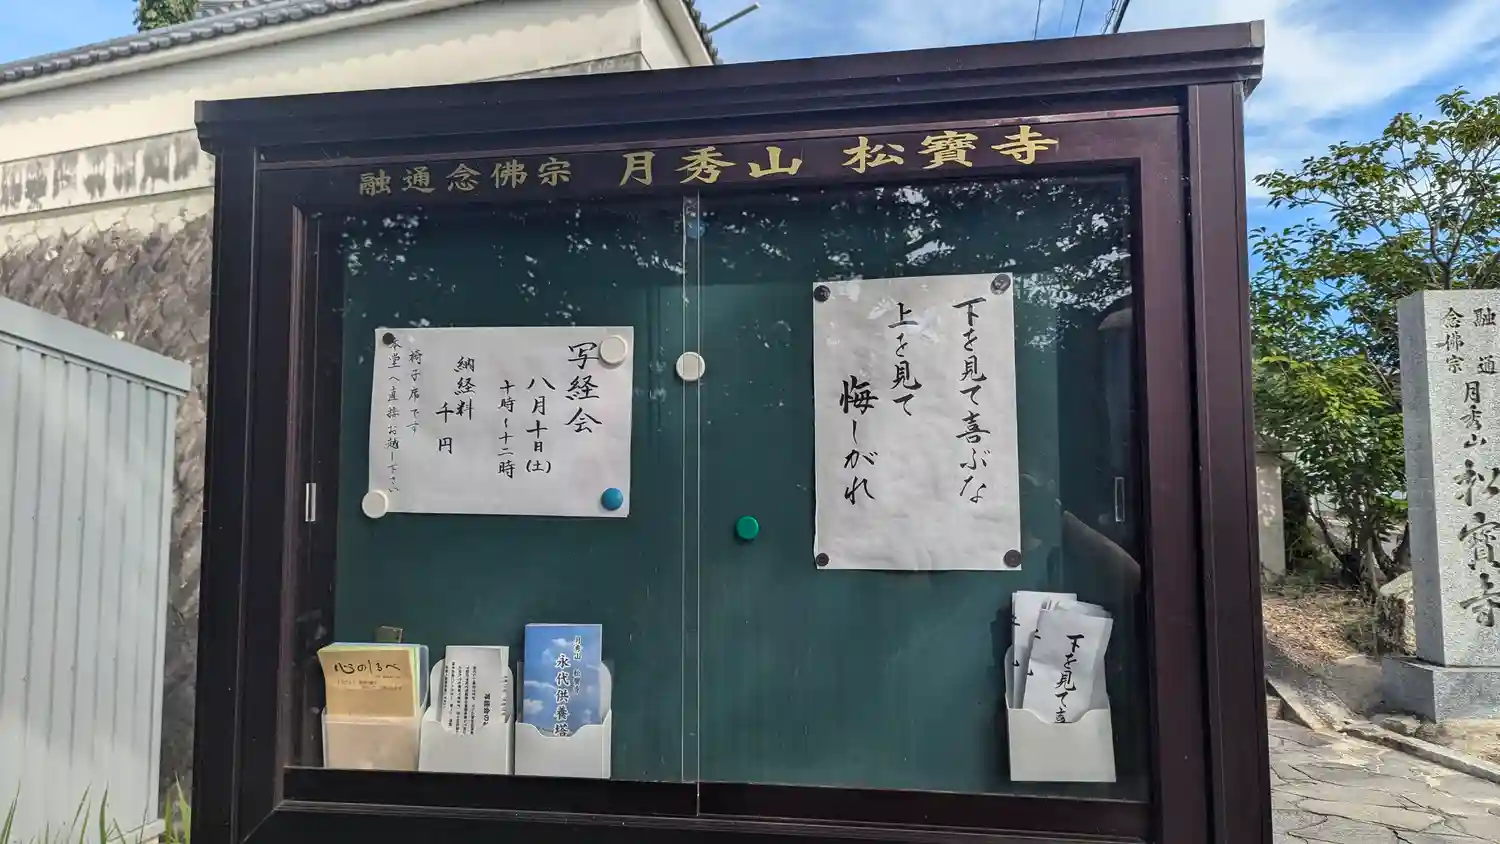 融通念佛宗 月秀山 松寳寺
下を見て喜ぶな
上を見て
悔しがれ
写経会
八月十日(土)
十時～十二時
納経料
千円
椅子席です
本堂へ直接お越し下さい
心のしるべ
月秀山 松寳寺
永代供養塔
下を見て喜
融通
念佛宗
月秀山 松寳寺